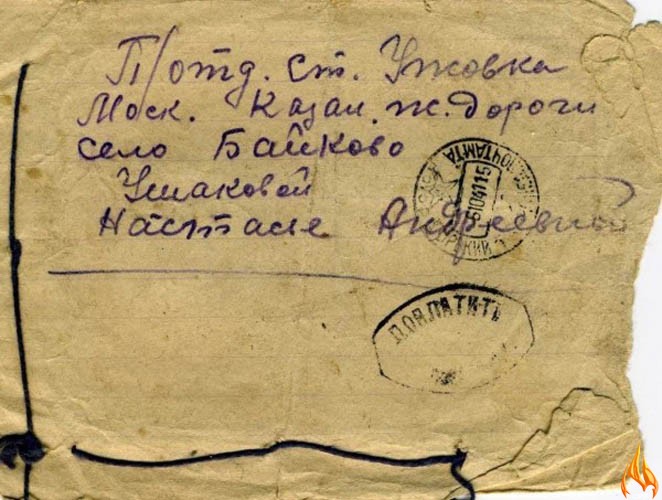 П/отд. ст. Ужовка
Моск. Казан. ж. дороги
село Байково
Ушаковой
Настасие Андреевной
ПОЧТАМТА
ДОПЛАТИТЬ